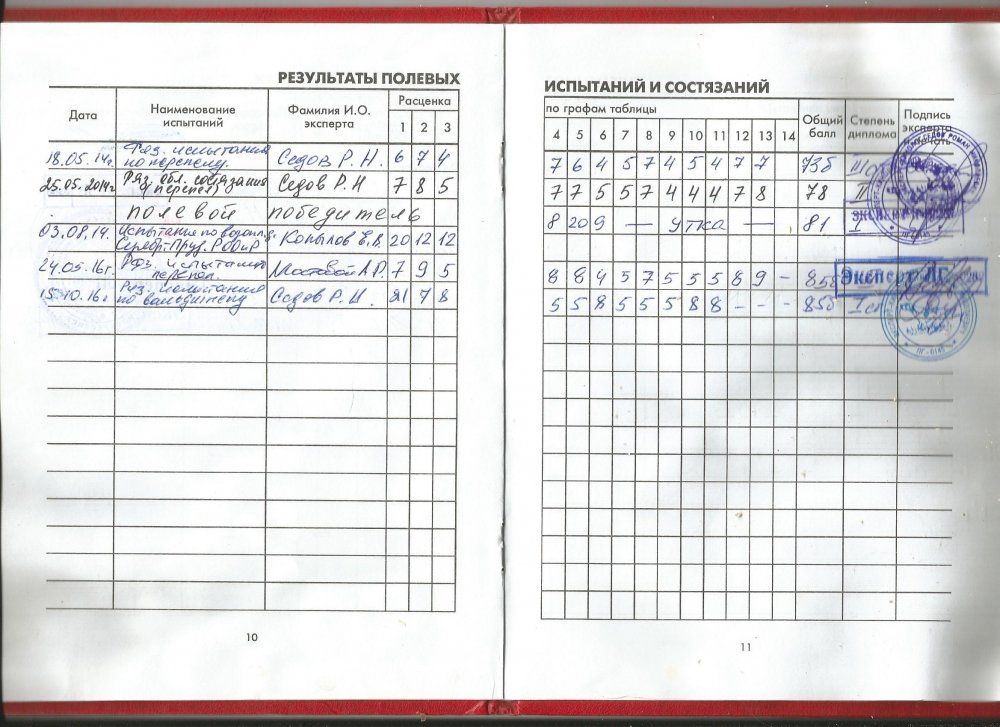 РЕЗУЛЬТАТЫ ПОЛЕВЫХ
Дата Наименование испытаний Фамилия И.О. эксперта Расценка
1 2 3
18.05.14г. Ряз. испытания по перепелу. Седов Р.Н. 6 7 4
25.05.2014г Ряз. обл. состязания (перепел) Седов Р.Н 7 8 5
полевой победитель
03.08.14. Испытание по Серебр-Пруд. РООиР Копылов Е.В. 20 12 12
24.05.16г. Ряз. испытания перепел. Мостовой А.Р. 7 9 5
15.10.16г Ряз. испытания по вальдшнепу Седов Р.Н. 21 7 8
10
ИСПЫТАНИЙ И СОСТЯЗАНИЙ
по графам таблицы Общий балл Степень диплома Подпись эксперта печать
4 5 6 7 8 9 10 11 12 13 14
7 6 4 5 7 4 5 4 7 7 73б III
7 7 5 5 7 4 4 4 7 8 78 II
8 20 9 — утка — 81 I
8 8 4 5 7 5 5 5 8 9 - 85б
5 5 8 5 5 5 8 8 - - - 85б
Эксперт
ПГ-0145
11